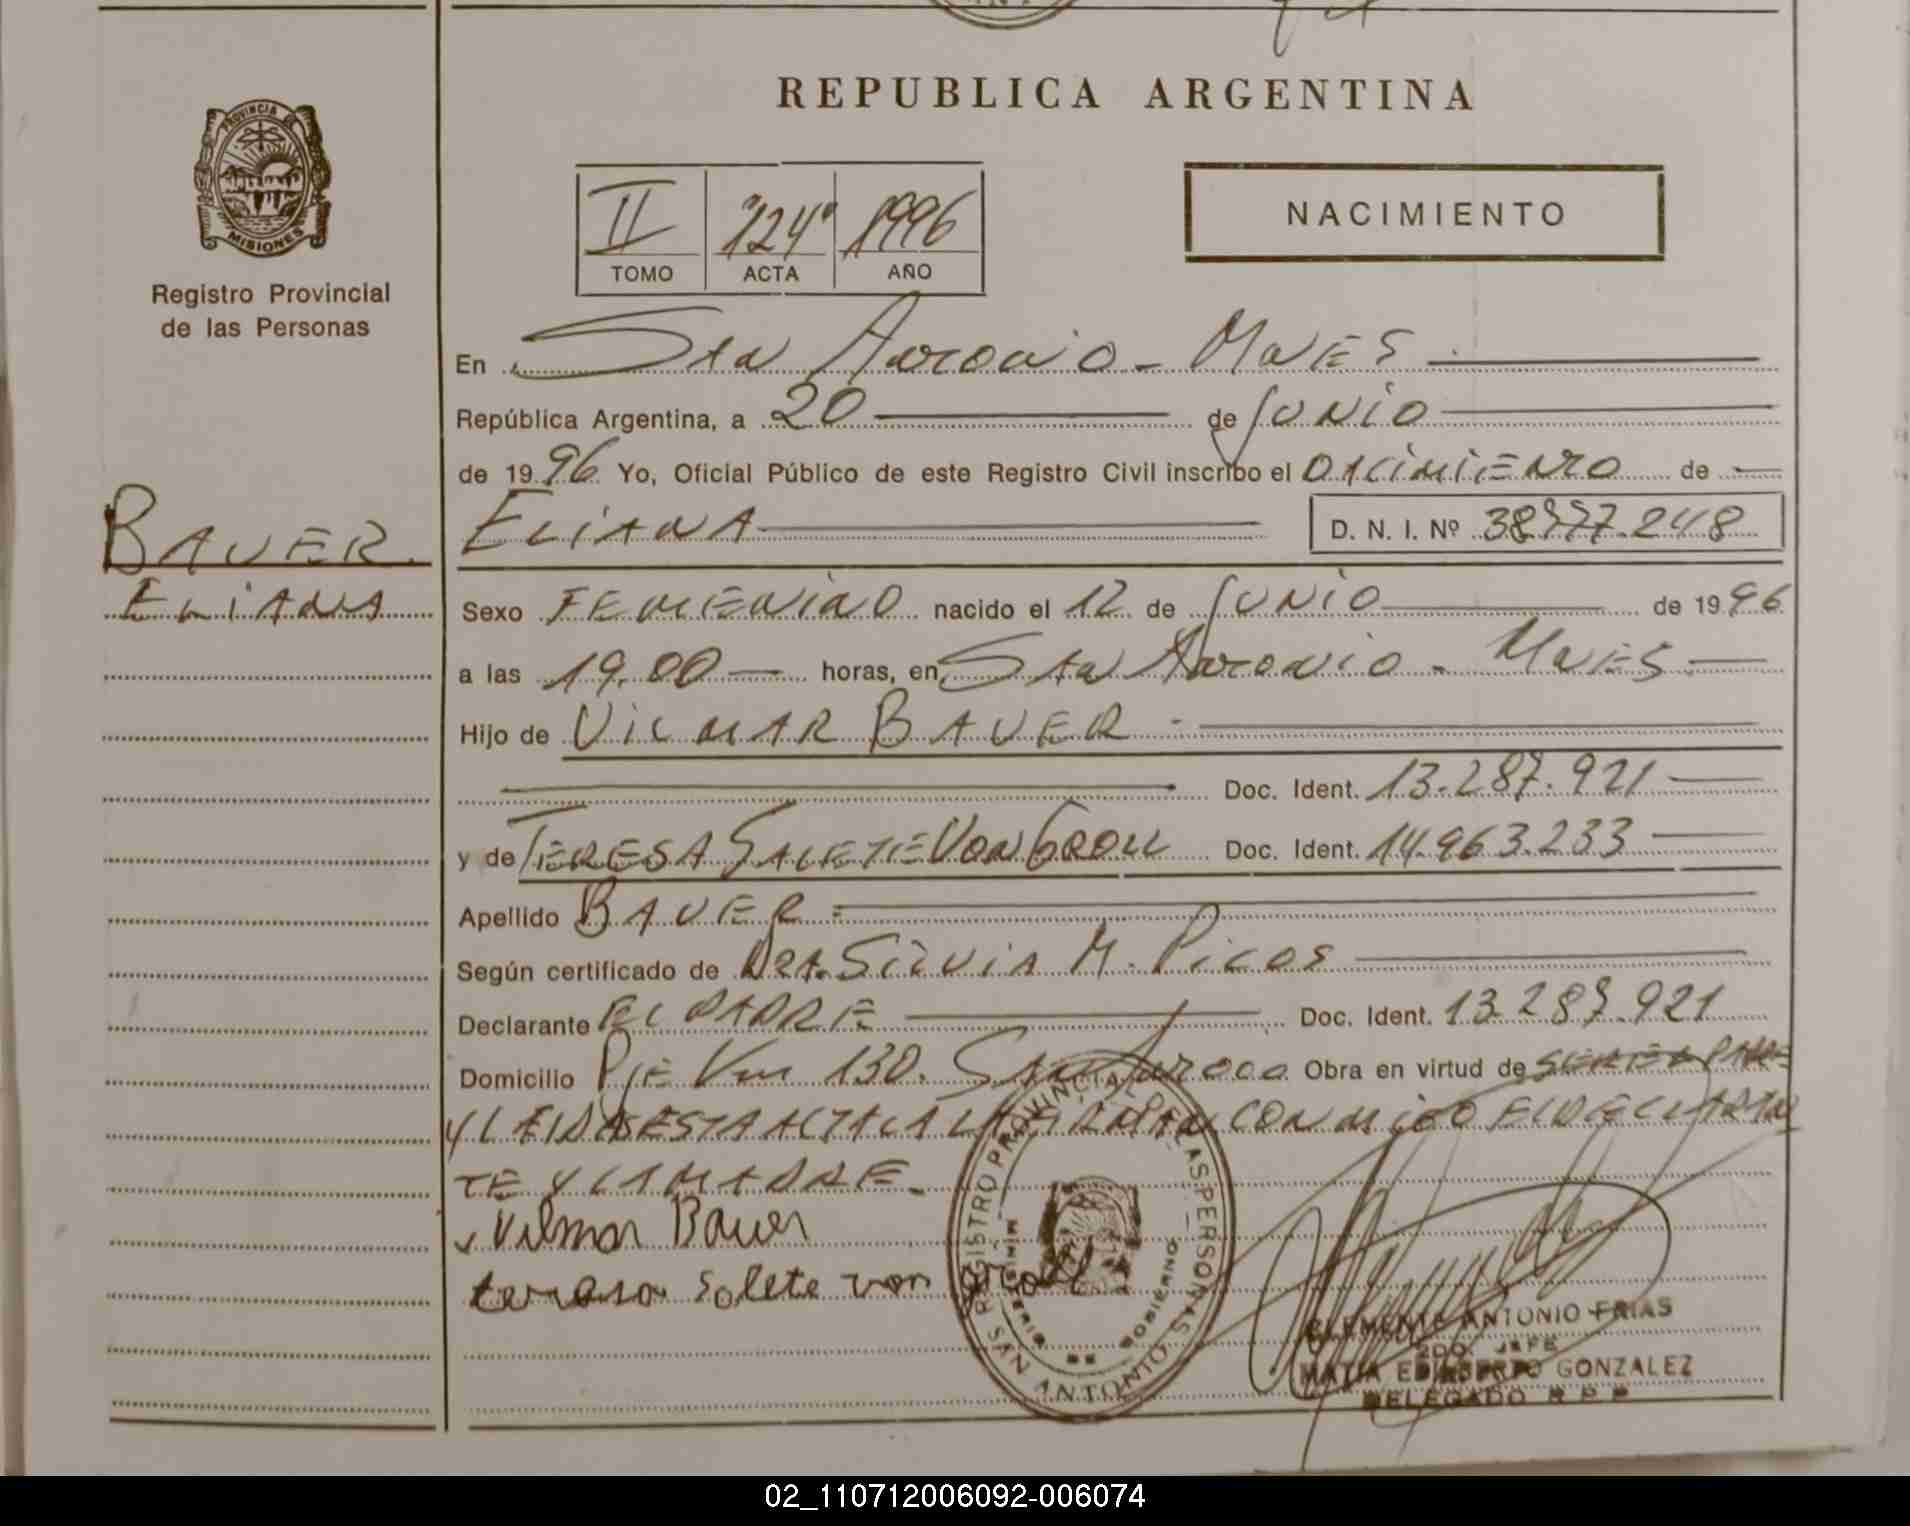 REPUBLICA ARGENTINA
PROVINCIA DE
MISIONES
Registro Provincial
de las Personas
II "124" 1996
TOMO ACTA AÑO
NACIMIENTO
En San Antonio - Mnes
República Argentina, a 20 de Junio
de 1996 Yo, Oficial Público de este Registro Civil inscribo el nacimiento de
BAUER
ELIANA
ELIANA D. N. I. Nº 38.777.248
Sexo FEMENINO nacido el 12 de JUNIO de 1996
a las 19.00 horas, en San Antonio - Mnes
Hijo de VILMAR BAUER
Doc. Ident. 13.287.921
y de TERESA SALETE VON GROLL Doc. Ident. 14.963.233
Apellido BAUER
Según certificado de DRA. Silvia M. Picos
Declarante EL PADRE Doc. Ident. 13.287.921
Domicilio Pje Km 130. San Antonio Obra en virtud de SER EL PADRE
Y LEIDA ESTA ACTA LA FIRMAN CONMIGO EL DECLARAN
TE Y LA MADRE.
Vilmar Bauer
teresa Salete von groll
REGISTRO PROVINCIAL DE LAS PERSONAS
SAN ANTONIO
MINISTERIO DE GOBIERNO
CLEMENTE ANTONIO FRIAS
2DO. JEFE
MATIA EDILBERTO GONZALEZ
DELEGADO R P P
02_110712006092-006074